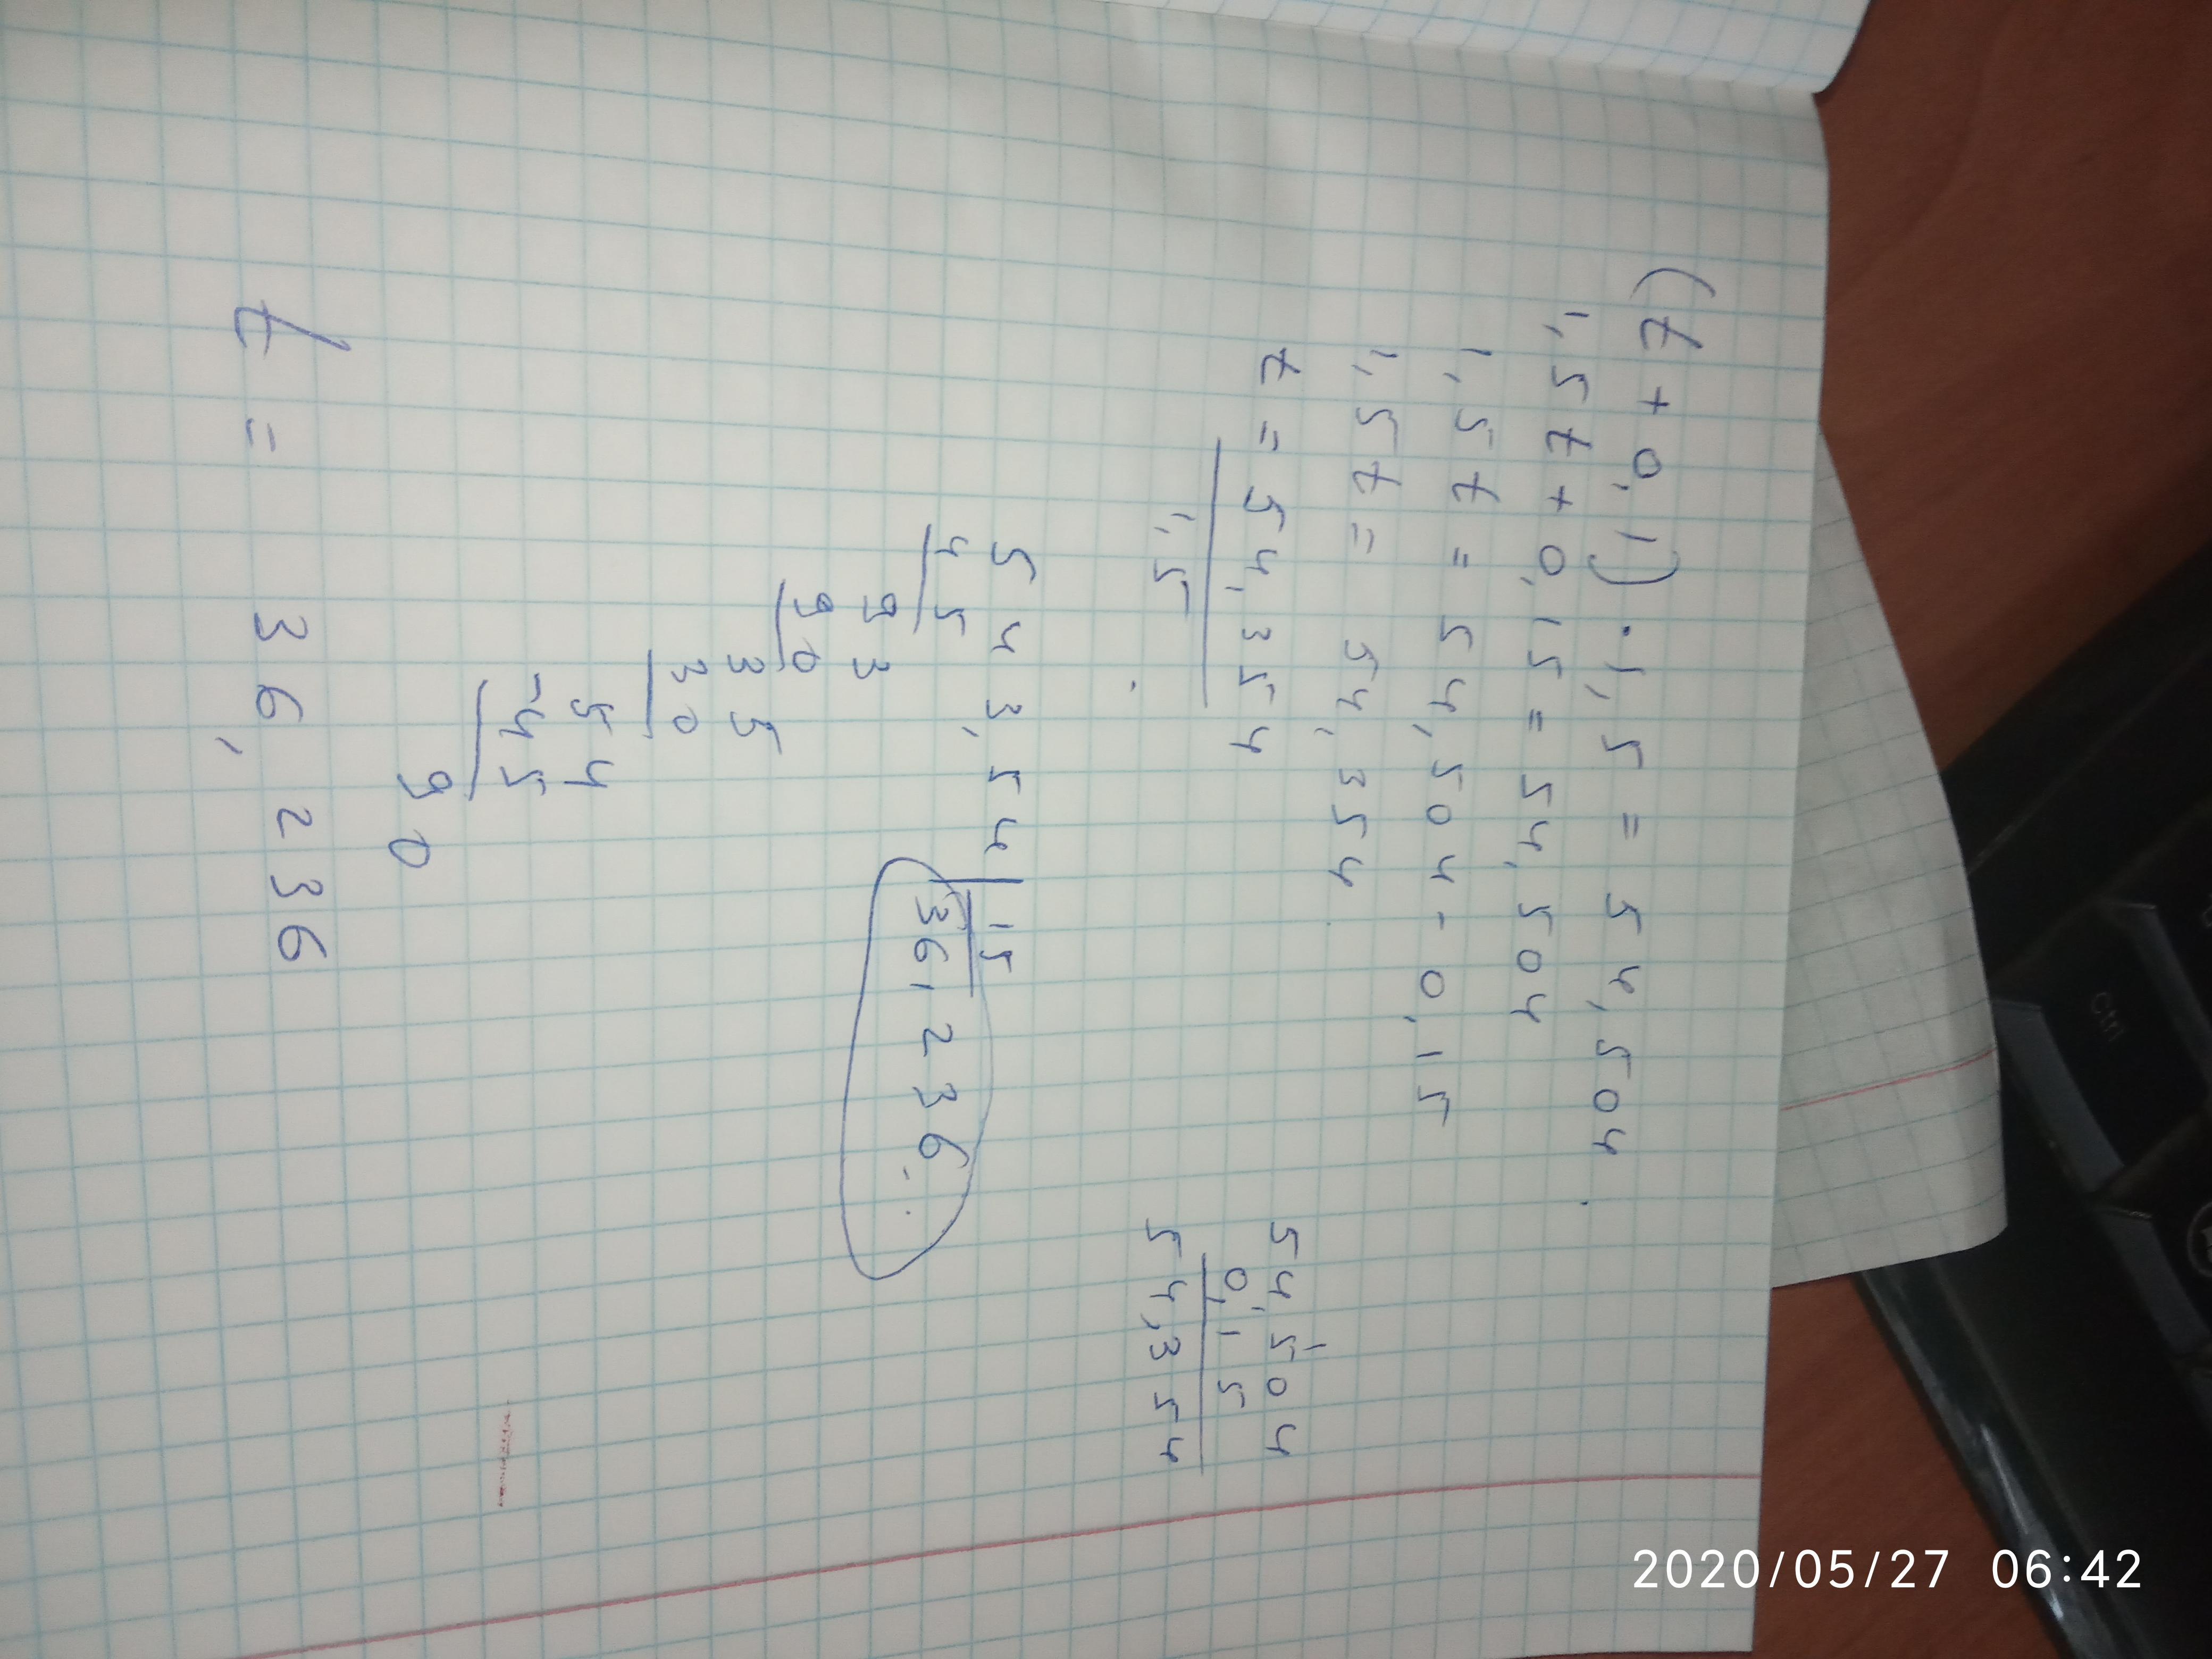 (t + 0,1) · 1,5 = 54,504
1,5t + 0,15 = 54,504
1,5t = 54,504 - 0,15
1,5t = 54,354
t = 54,354
1,5
54,504
0,15
54,354
543,54 | 15
45
36,236
93
90
35
30
54
-45
90
t = 36,236
Ctrl
2020/05/27 06:42